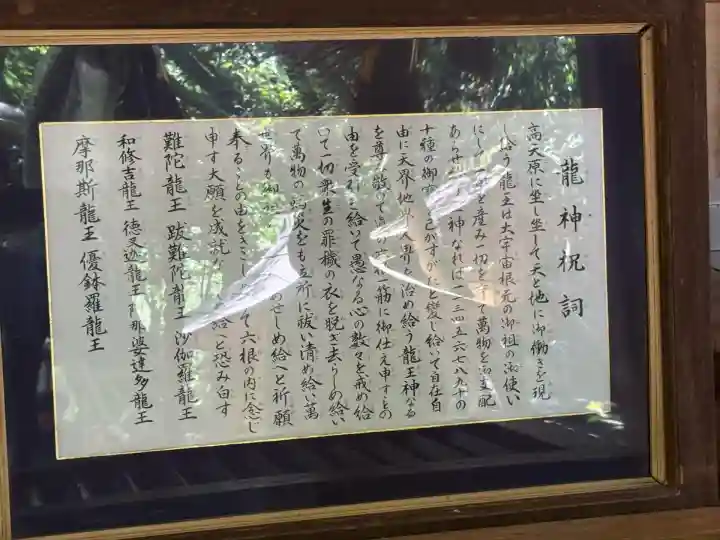 龍神祝詞
高天原に坐し坐して天と地に御働きを現
し給う龍王は大宇宙根元の御祖の御使い
にし 一 を産み一切を て萬物を御支配
あらせ 神なれば一二三四五六七八九十の
十種の御 を己がすがたと変じ給いて自在自
由に天界地 界を治め給う龍王神なる
を尊 敬 の 筋に御仕え申すことの
由を受引 給いて愚なる心の数々を戒め給
いて一切衆生の罪穢の衣を脱ぎ去らしめ給い
て萬物の 災をも立所に祓い清め給い萬
世界も御 のせしめ給へと祈願
奉ることの由をきこし て六根の内に念じ
申す大願を成就 給へと恐み白す
難陀龍王 跋難陀龍王 沙伽羅龍王
和修吉龍王 徳叉迦龍王 阿那婆達多龍王
摩那斯龍王 優鉢羅龍王